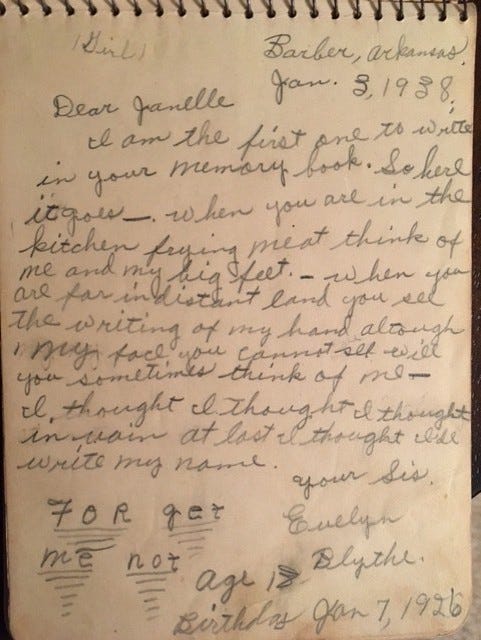 (Girl)
Barber, Arkansas.
Jan. 3, 1938.
Dear Janelle
I am the first one to write
in your memory book. So here
it goes —. When you are in the
kitchen frying meat think of
me and my big feet. — When you
are far in distant land you see
the writing of my hand altough
my face you cannot see will
you sometimes think of me —
I, thought I thought I thought
in vain at last I thought I'll
write my name.
Your Sis.
Evelyn
Blythe.
FOR get
me not
Age 12
Birthday Jan 7, 1926